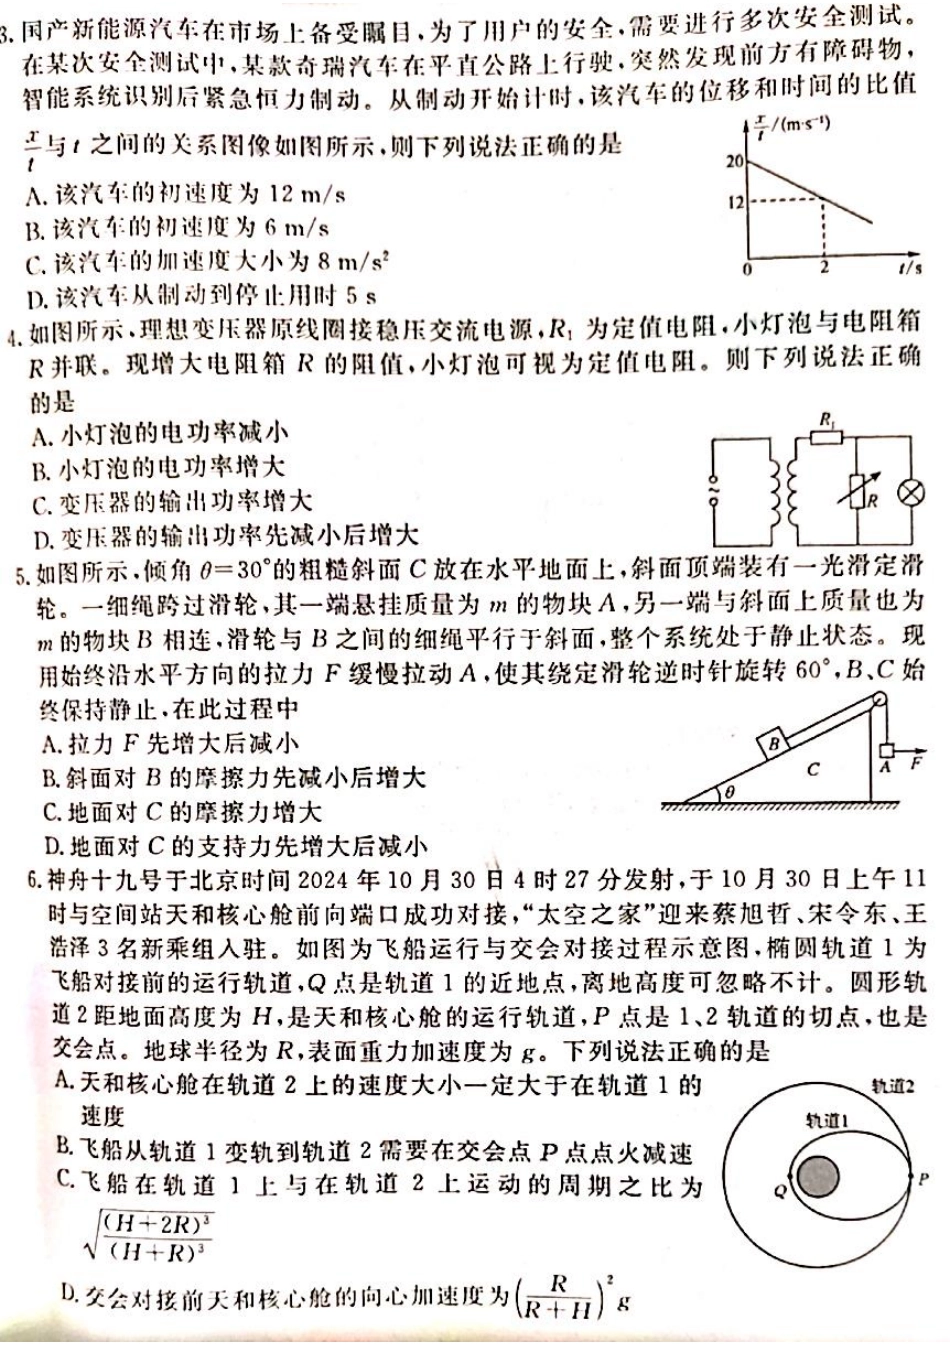 3. 国产新能源汽车在市场上备受瞩目,为了用户的安全,需要进行多次安全测试。
在某次安全测试中,某款奇瑞汽车在平直公路上行驶,突然发现前方有障碍物,
智能系统识别后紧急恒力制动。从制动开始计时,该汽车的位移和时间的比值
x/t 与 t 之间的关系图像如图所示,则下列说法正确的是
x/t/(m·s⁻¹)
20
12
0
2
t/s
A. 该汽车的初速度为 12 m/s
B. 该汽车的初速度为 6 m/s
C. 该汽车的加速度大小为 8 m/s²
D. 该汽车从制动到停止用时 5 s
4. 如图所示,理想变压器原线圈接稳压交流电源,R₁ 为定值电阻,小灯泡与电阻箱
R 并联。现增大电阻箱 R 的阻值,小灯泡可视为定值电阻。则下列说法正确
的是
A. 小灯泡的电功率减小
B. 小灯泡的电功率增大
C. 变压器的输出功率增大
D. 变压器的输出功率先减小后增大
R₁
R
5. 如图所示,倾角 θ=30°的粗糙斜面 C 放在水平地面上,斜面顶端装有一光滑定滑
轮。一细绳跨过滑轮,其一端悬挂质量为 m 的物块 A,另一端与斜面上质量也为
m 的物块 B 相连,滑轮与 B 之间的细绳平行于斜面,整个系统处于静止状态。现
用始终沿水平方向的拉力 F 缓慢拉动 A,使其绕定滑轮逆时针旋转 60°,B、C 始
终保持静止,在此过程中
A. 拉力 F 先增大后减小
B. 斜面对 B 的摩擦力先减小后增大
C. 地面对 C 的摩擦力增大
D. 地面对 C 的支持力先增大后减小
B
C
A
F
θ
6. 神舟十九号于北京时间 2024 年 10 月 30 日 4 时 27 分发射,于 10 月 30 日上午 11
时与空间站天和核心舱前向端口成功对接,“太空之家”迎来蔡旭哲、宋令东、王
浩泽 3 名新乘组入驻。如图为飞船运行与交会对接过程示意图,椭圆轨道 1 为
飞船对接前的运行轨道,Q 点是轨道 1 的近地点,离地高度可忽略不计。圆形轨
道 2 距地面高度为 H,是天和核心舱的运行轨道,P 点是 1、2 轨道的切点,也是
交会点。地球半径为 R,表面重力加速度为 g。下列说法正确的是
A. 天和核心舱在轨道 2 上的速度大小一定大于在轨道 1 的
速度
B. 飞船从轨道 1 变轨到轨道 2 需要在交会点 P 点点火减速
C. 飞船在轨道 1 上与在轨道 2 上运动的周期之比为
√((H+2R)³/(H+R)³)
D. 交会对接前天和核心舱的向心加速度为(R/(R+H))² g
轨道2
轨道1
Q
P